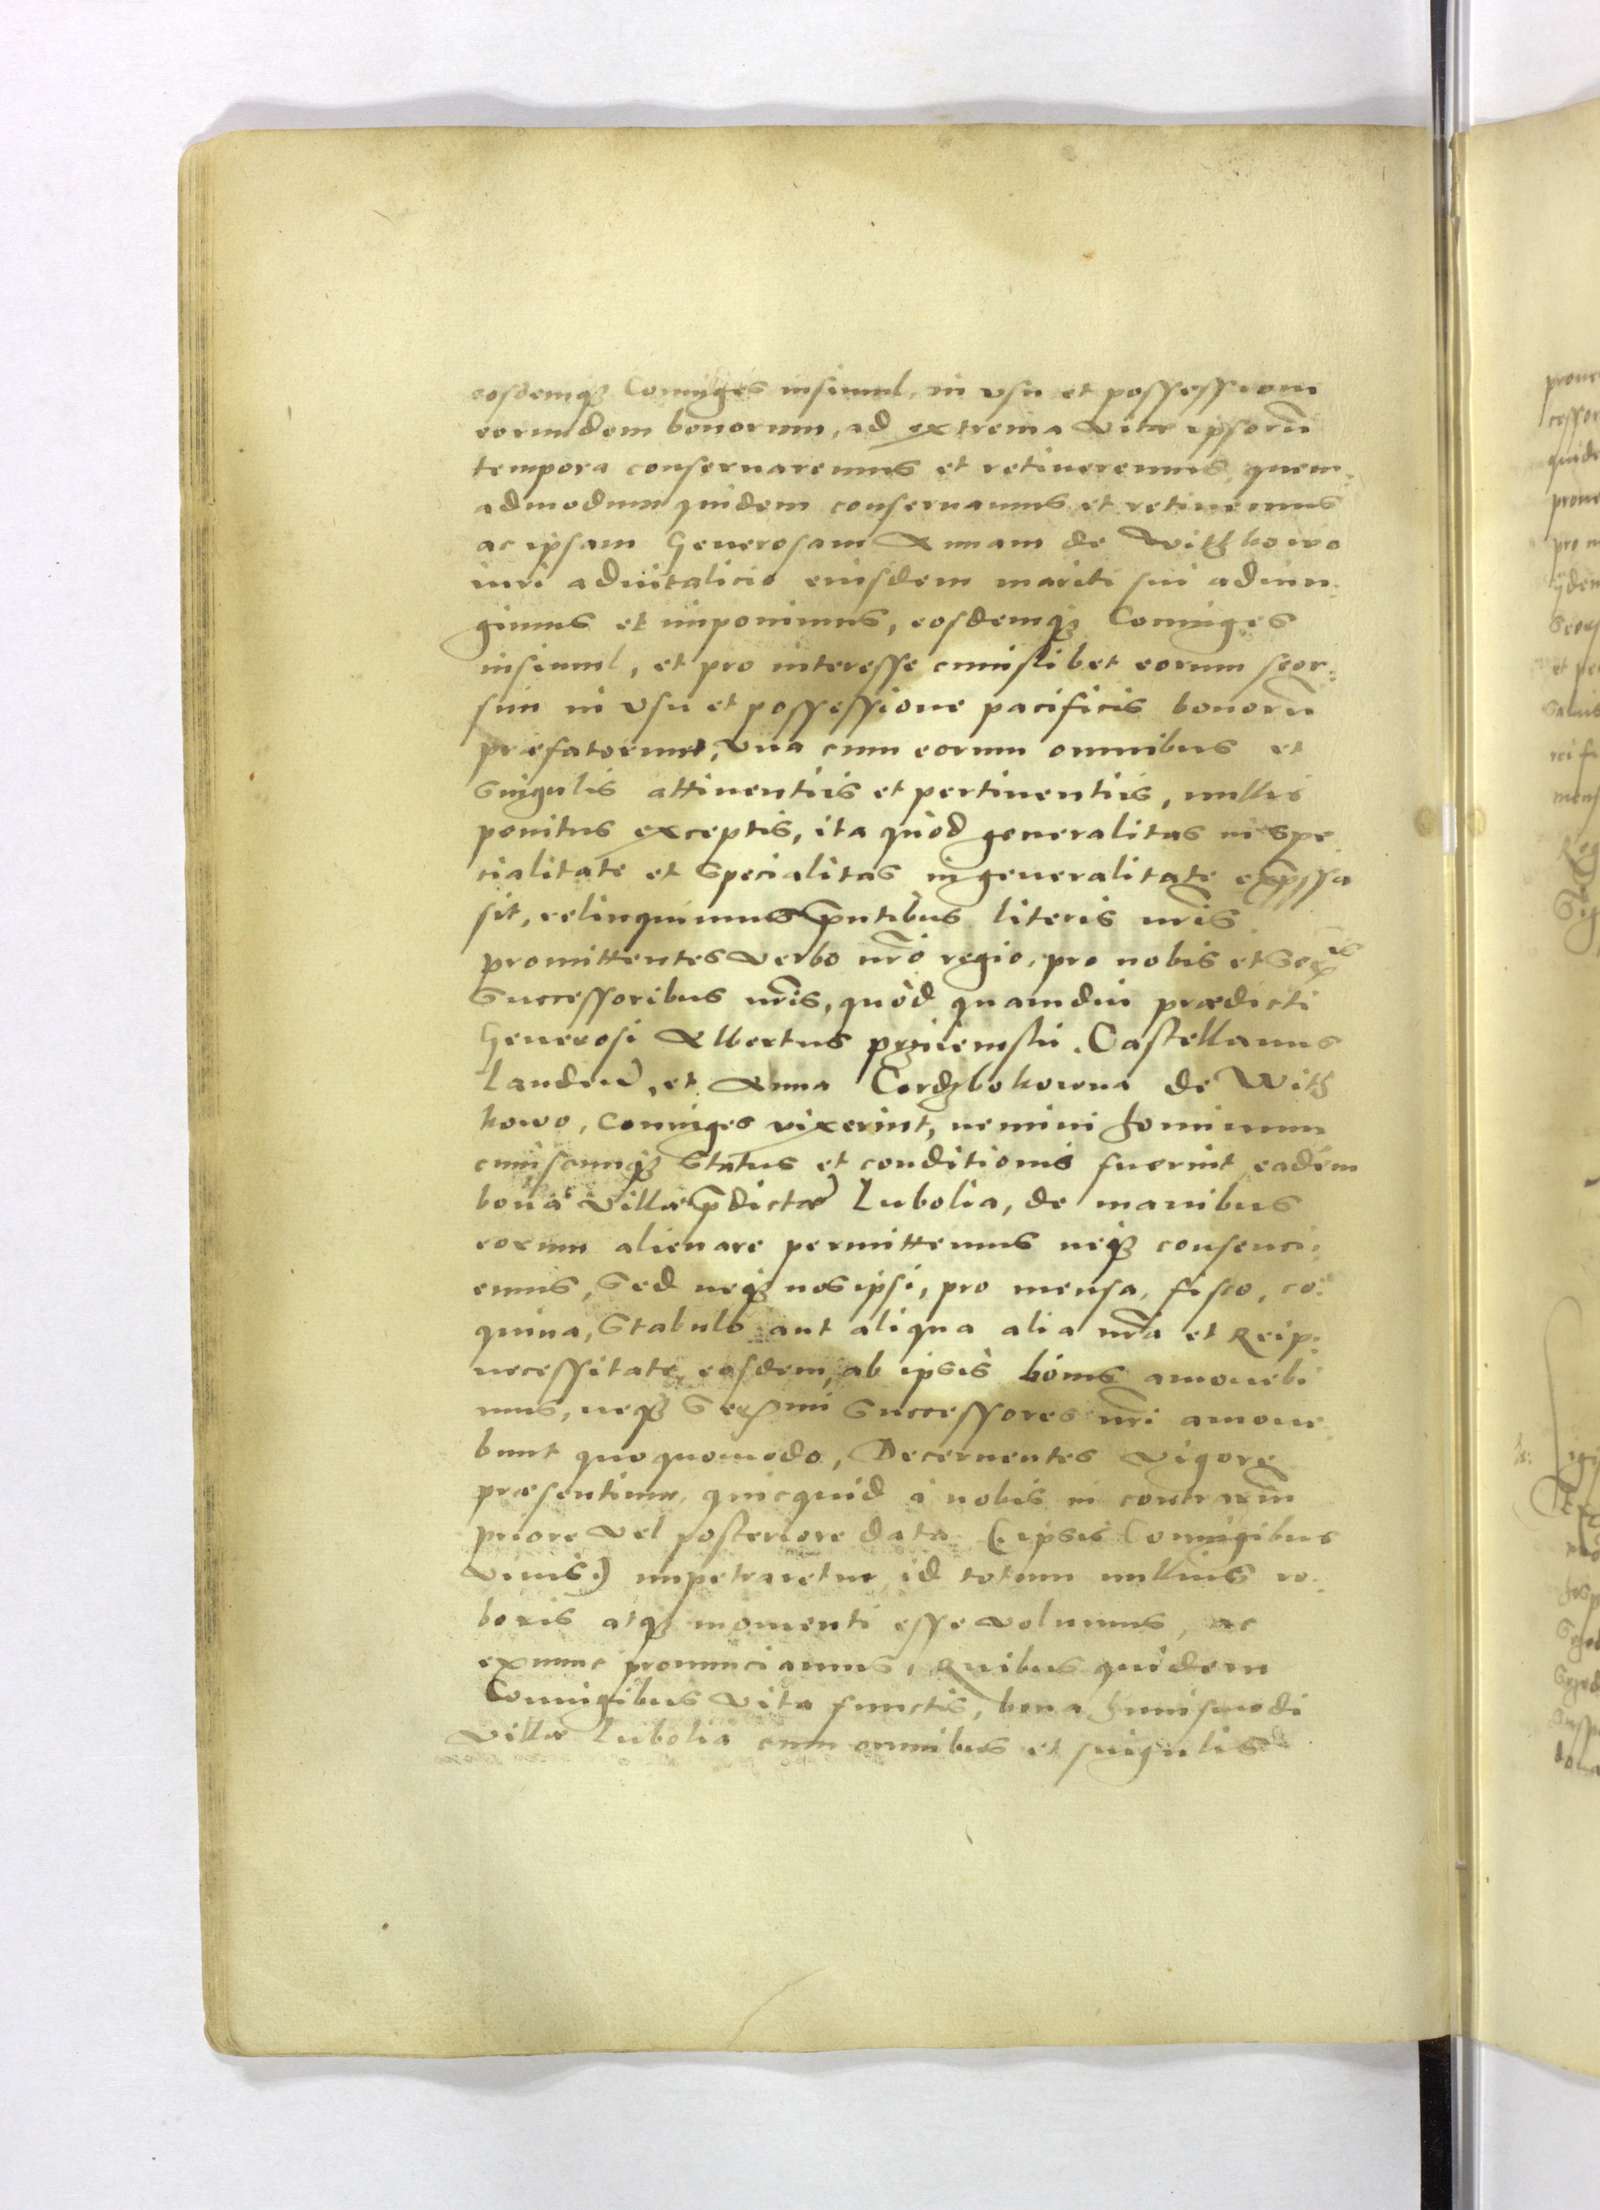 eosdemq3 Coniuges insimul, in vsu et possessione
eorundem bonorum, ad extrema vitae ipsorū
tempora conseruaremus et retineremus, quem
admodum quidem conseruamus et retinemus
ac ipsam Generosam Annam de Withkowo
iuri aduitalicio eiusdem mariti sui adiun
gimus et imponimus, eosdemq3 Coniuges
insimul, et pro interesse cuiuslibet eorum seor
sim in vsu et possessione pacificis bonorū
praefatorum, vna cum eorum omnibus et
singulis attinentiis et pertinentiis, nullis
penitus exceptis, ita quod generalitas in spe
cialitate et specialitas in generalitate expssa
sit, relinquimus pntibus literis nris
promittentes verbo nrō regio, pro nobis et Ser
Successoribus nris, quòd quamdiu praedicti
Generosi Albertus przyiemski Castellanus
Landen, et Anna Cerdzbokowna de With
kowo, Coniuges vixerint, nemini hominum
cuiuscunq3 status et conditionis fuerint eadem
bona villae pdictae Lubolia, de manibus
eorum alienare permittemus neq3 consenci
emus, Sed neq3 nos ipsi, pro mensa, fisco, co
quina, Stabulo aut aliqua alia nra et Reip:
necessitate, eosdem, ab ipsis bonis amouebi
mus, neq3 Sermi Successores nri amoue
bunt quoquomodo, Decernentes vigore
praesentium, quicquid à nobis in contrariū
priore vel posteriore data (ipsis Coniugibus
viuis) impetraretur, id totum nullius ro
boris atq3 momenti esse volumus, ac
exnunc pronunciamus, Quibus quidem
Coniugibus vita functis, bona huiusmodi
villae Lubolia cum omnibus et singulis